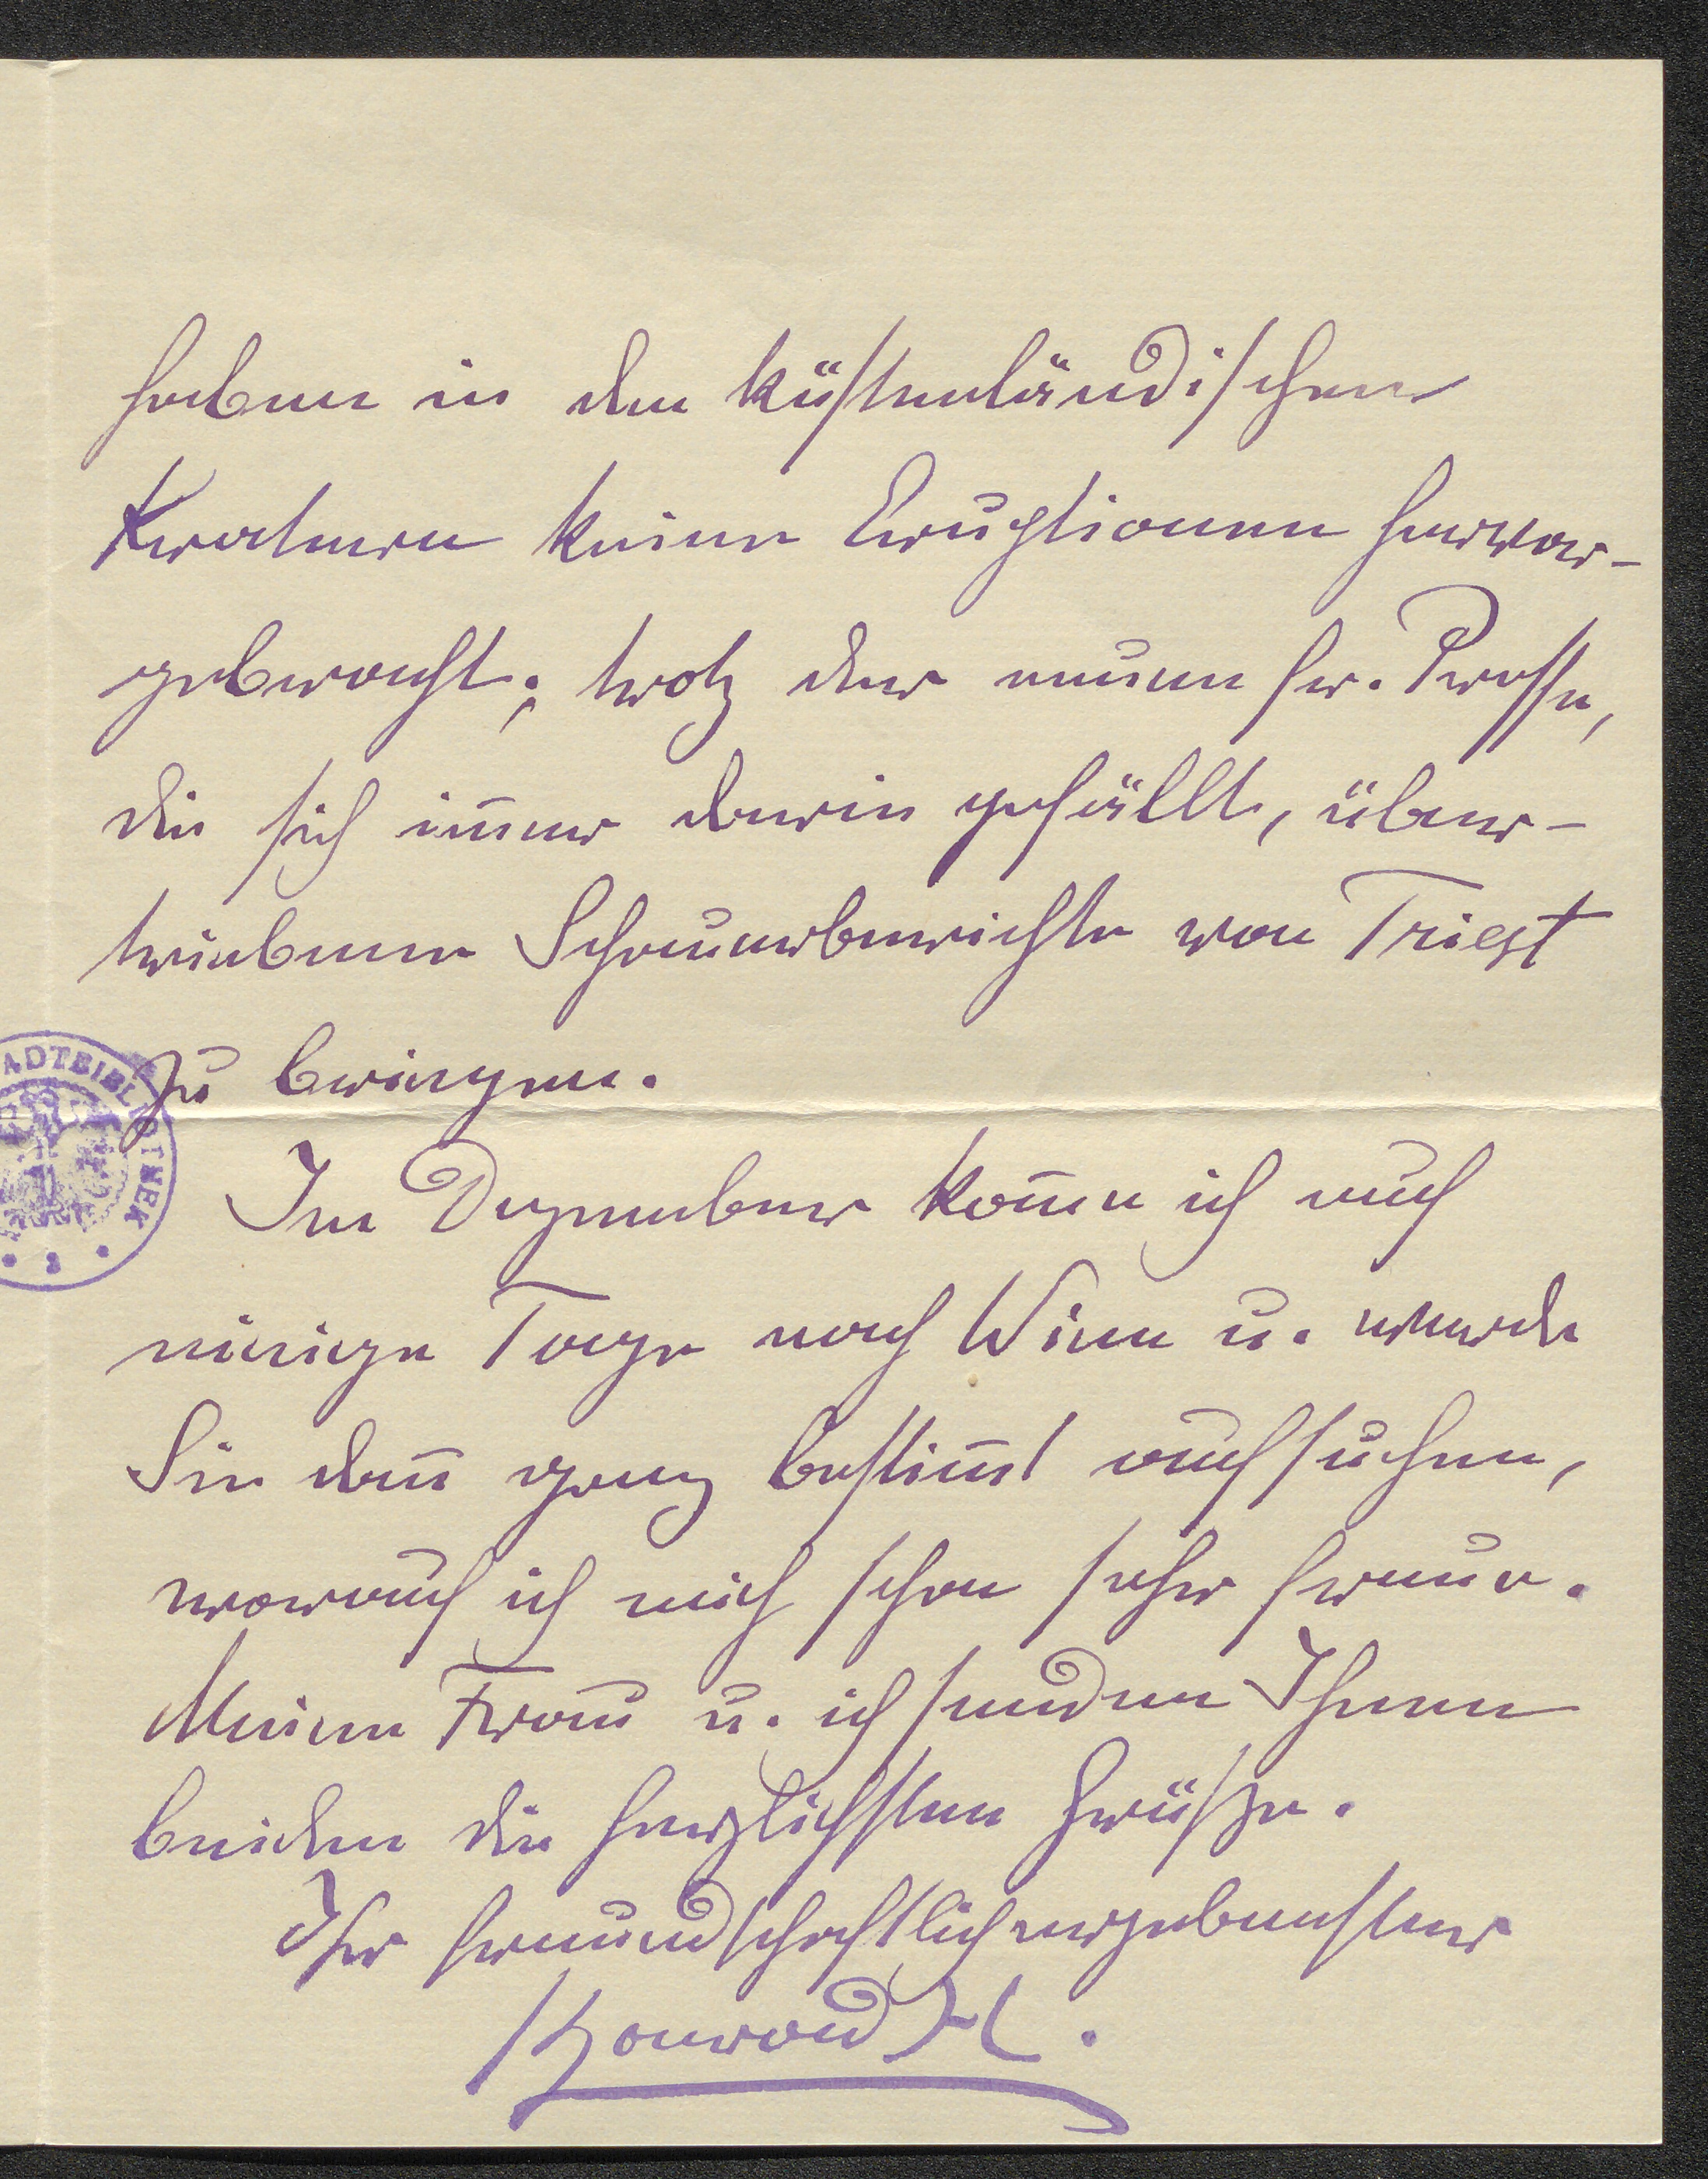 haben in den küstenländischen
Kratern keine Eruptionen hervor-
gebracht; trotz der neuen fr. Presse,
die sich im̅er darin gefällt, über-
triebene Schauerberichte von Triest
zu bringen.
Im Dezember kom̅e ich auf
einige Tage nach Wien u. werde
Sie dan̅ ganz bestim̅t aufsuchen,
worauf ich mich schon sehr freue.
Meine Frau u. ich senden Ihnen
beiden die herzlichsten Grüße.
Ihr freundschaftlich ergebenster
Konrad H.
ADTBIBLIOTHEK